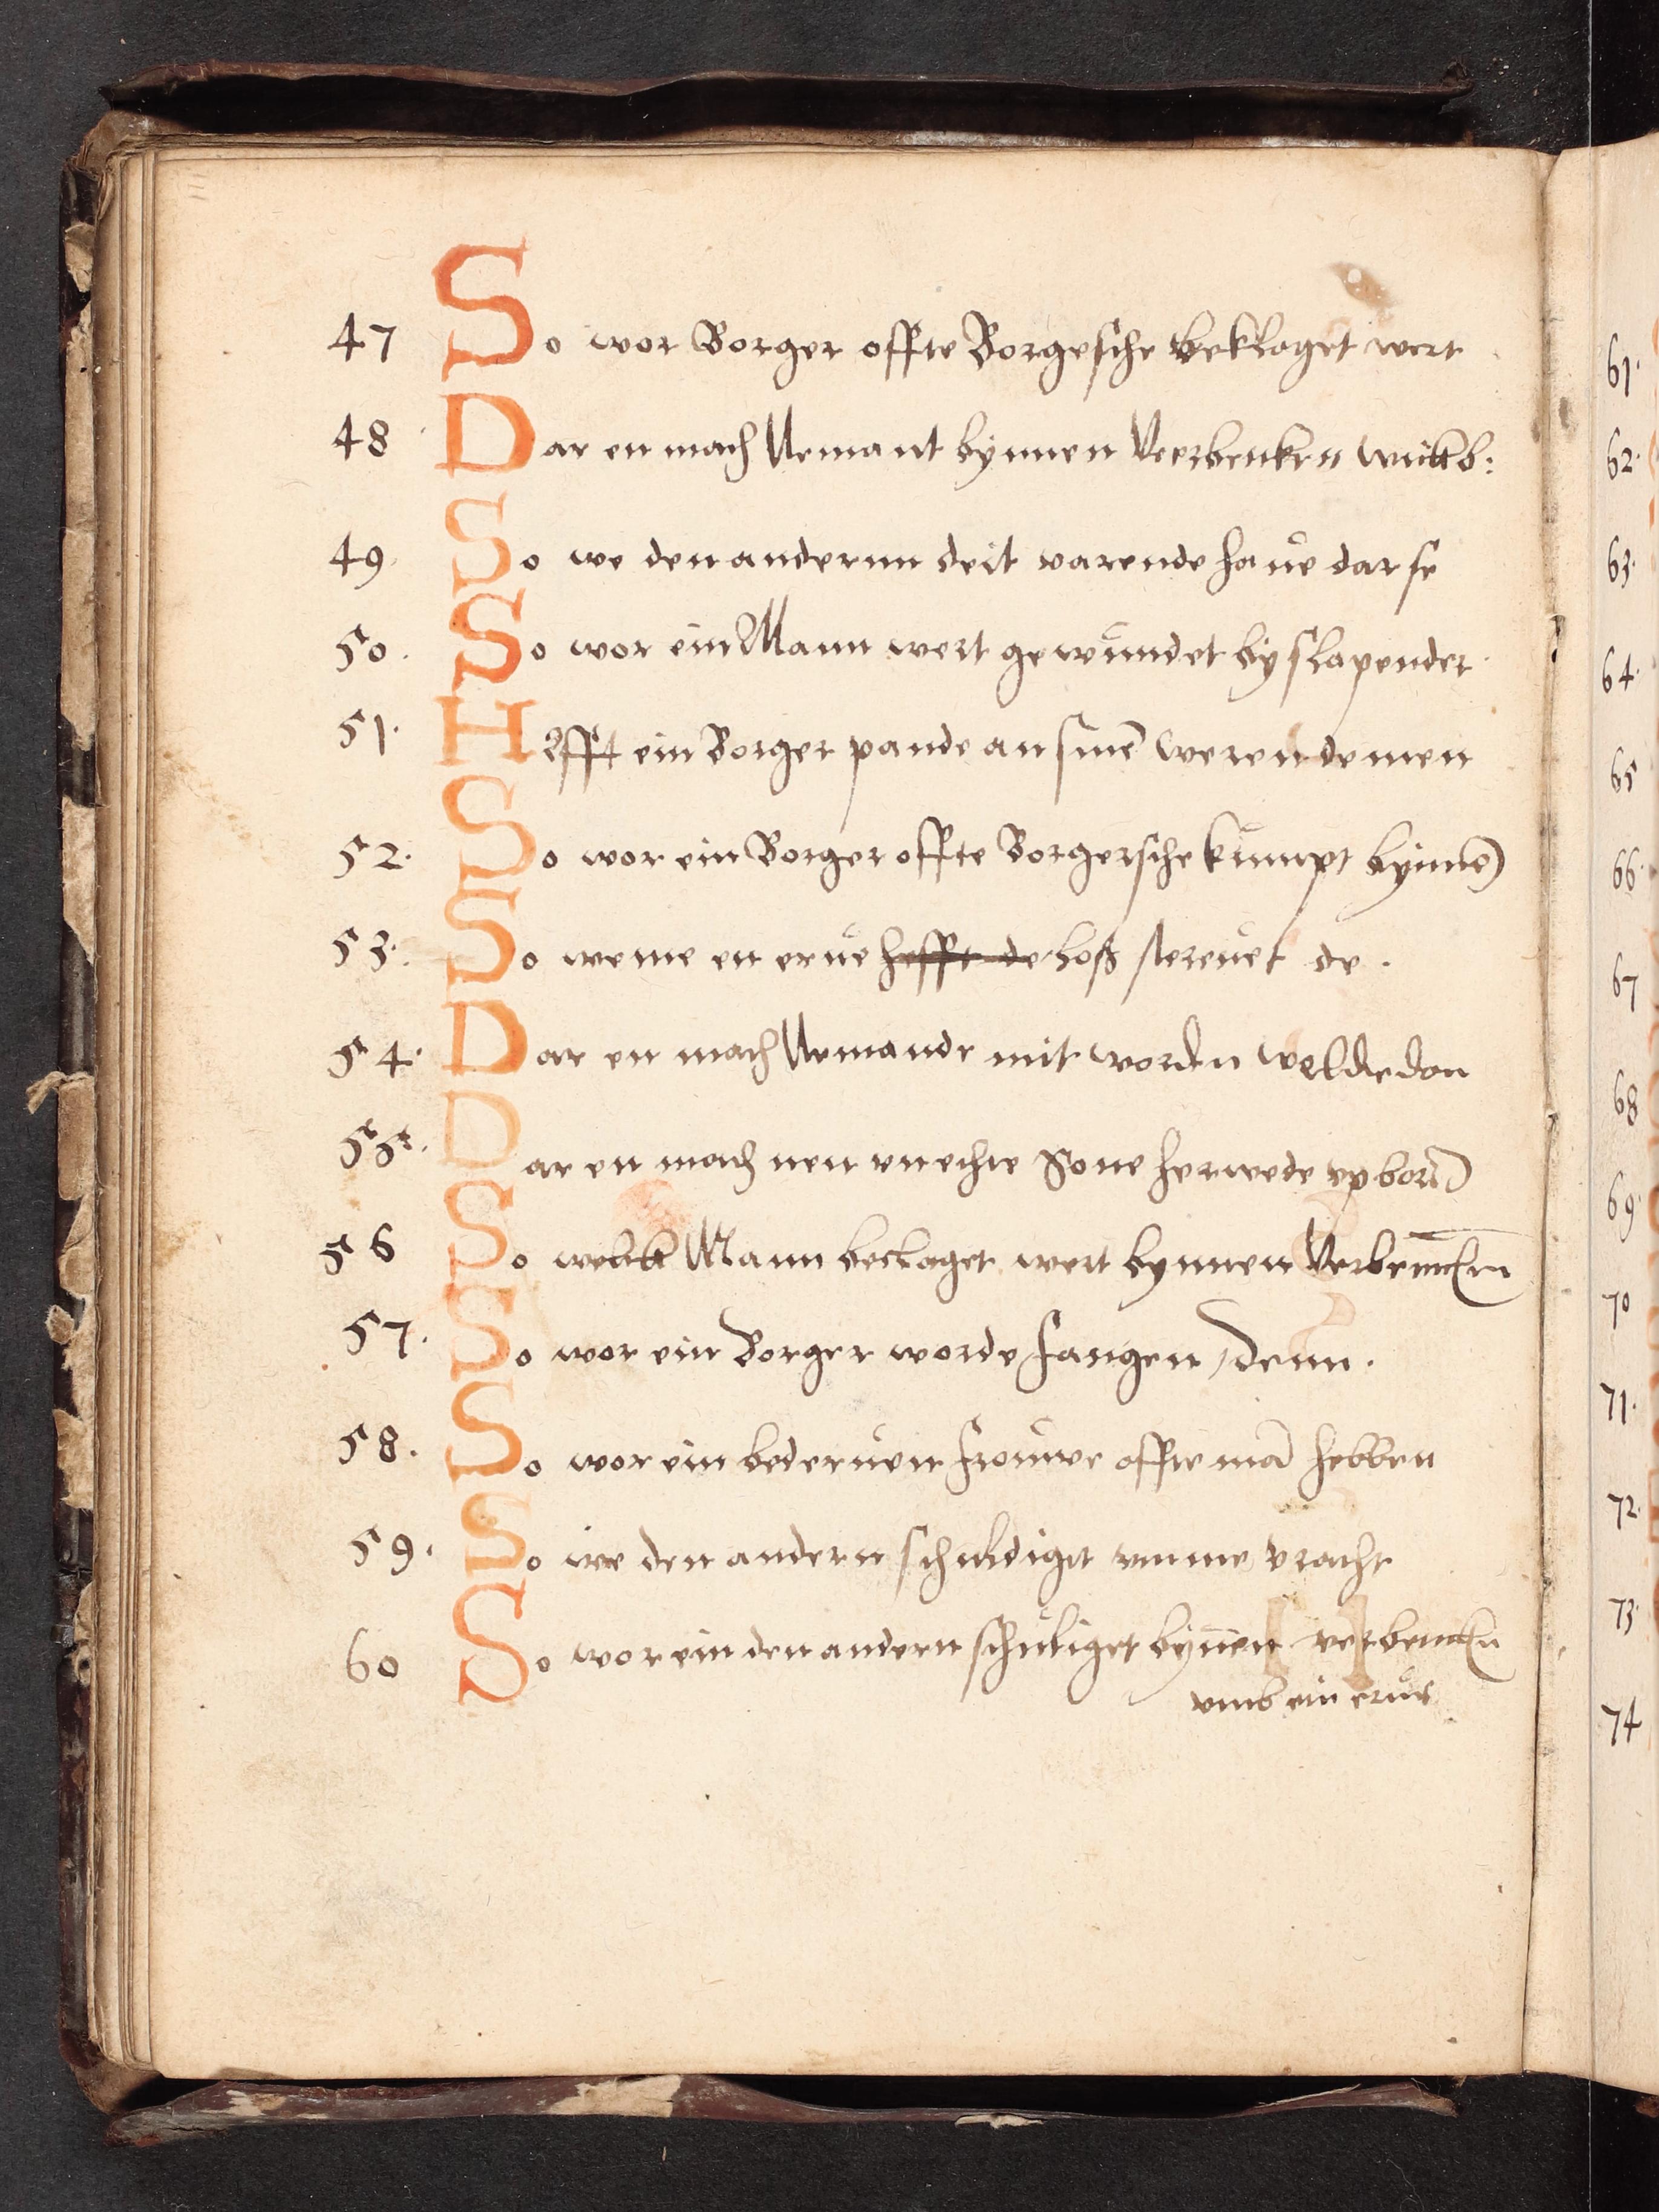 47 So wor Borger offte Borgesche beklaget wert
48 Dar en mach Nemant bynnen Veerbencken wickb:
49 So we den andernn deit varende haue dar se
50. So wor ein Mann wert gewundet by slapender
51. Hefft ein Borger pande an sinē weren de men
52. So wor ein Borger offte Borgersche kumpt bynnē
53. So weme en erue hefft de loß steruet de.
54. Dar en mach Nemande mit worden welde don
55. Dar en mach nen vnechte Sone herwede vpborē
56 So welck Mann beclaget wert bynnen Verbencken
57. So wor ein Borger worde fangen, denn.
58. So wor ein bederuen frouwe offte mā hebben
59. So we den andern schuldiget vmme vracht
60 So wor ein den andern schuliget bynnen verbencken
vmb ein erue
61.
62.
63.
64.
65
66.
67
68
69.
70
71.
72.
73.
74